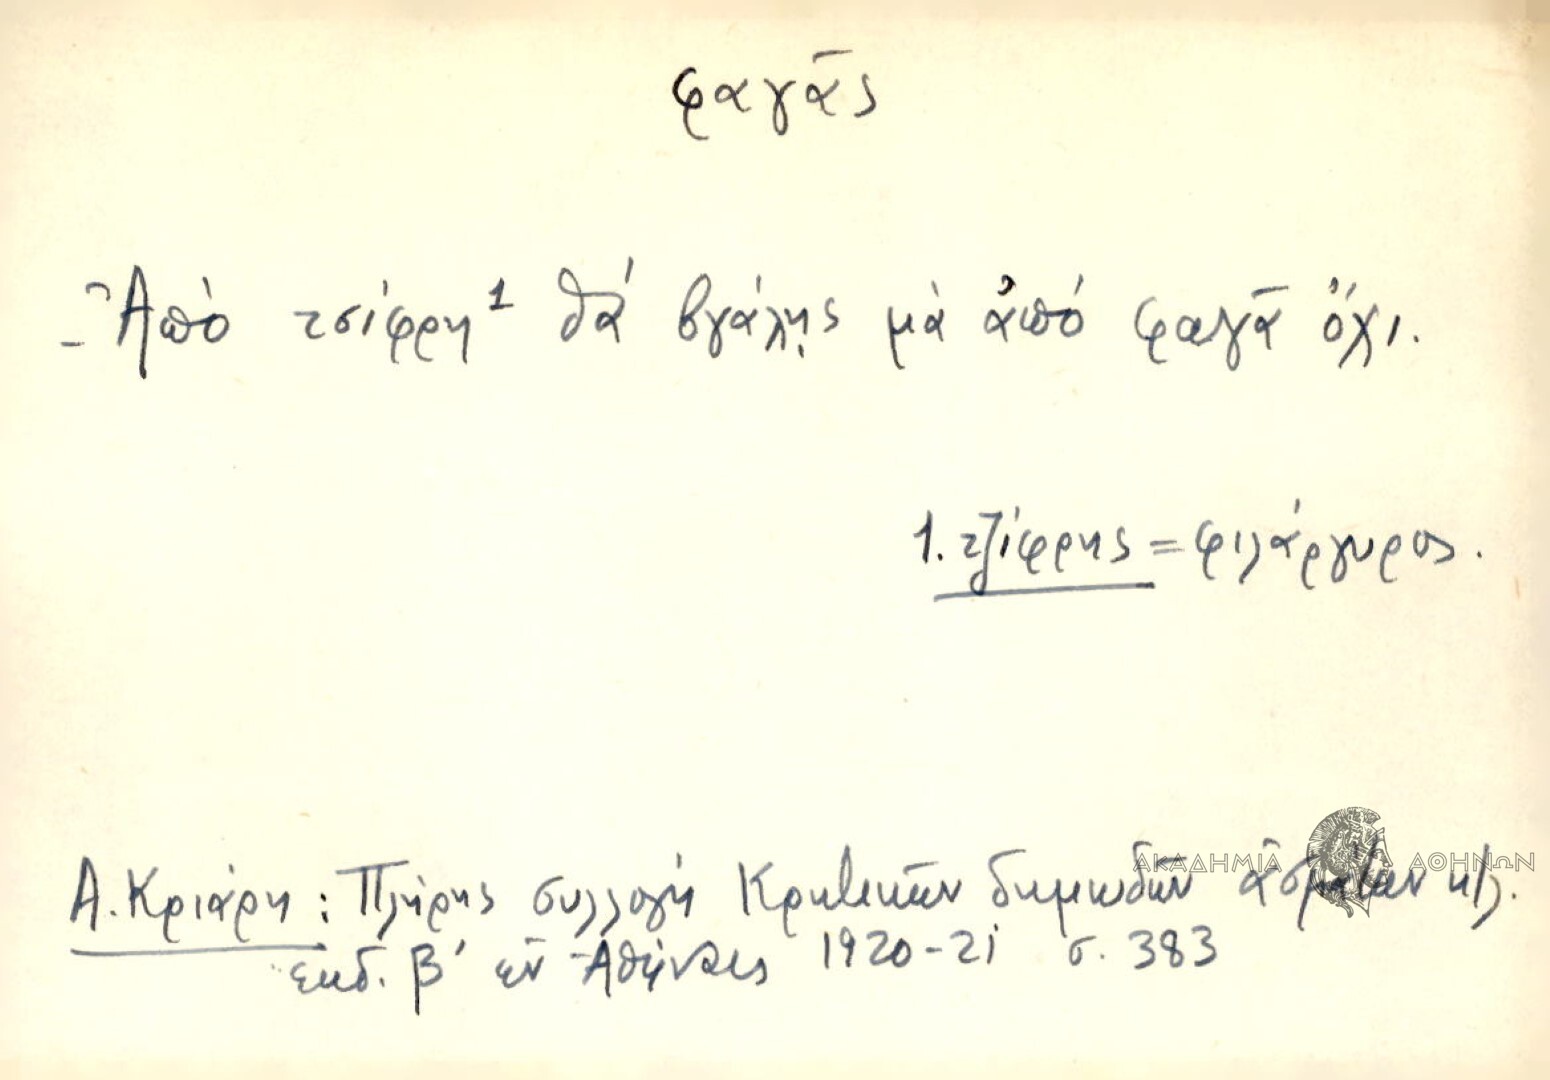 φαγᾶς
- Ἀπὸ τσίφρη¹ θά βγάλῃς μὰ ἀπό φαγᾶ ὄχι.
1. τζίφρης = φιλάργυρος.
ΑΚΑΔΗΜΙΑ ΑΘΗΝΩΝ
Α. Κριάρη : Πλήρης συλλογή Κρητικῶν δημωδῶν ᾀσμάτων κ/λ.
ἐκδ. β' ἐν Ἀθήναις 1920-21 σ. 383